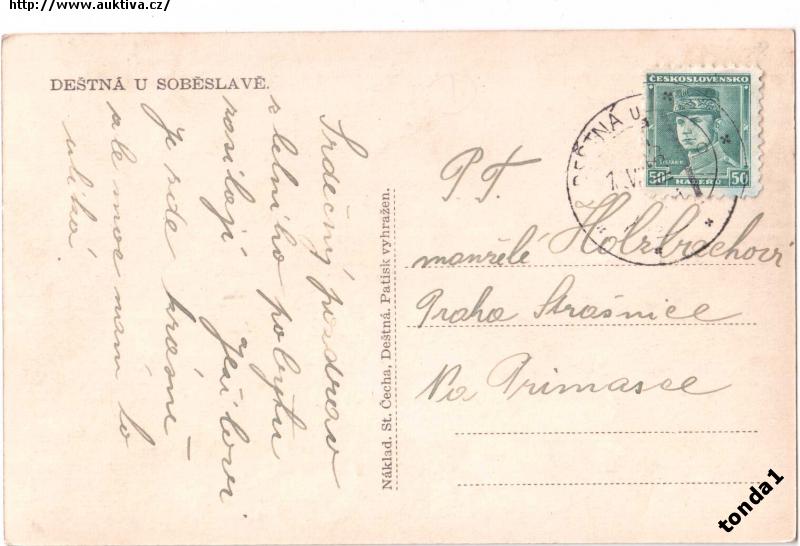 http://www.auktiva.cz/
DEŠTNÁ U SOBĚSLAVĚ.
Srdečný pozdrav
z letního pobytu
zasílají Ješílovi
Je zde krásně
ale moc nám to
utíká.
Náklad. St. Čecha, Deštná. Patisk vyhražen.
ČESKOSLOVENSKO
50 HALÉŘŮ 50
DEŠTNÁ U
P.T.
manželé Holzbachovi
Praha Strašnice
Na Primasce
tonda1